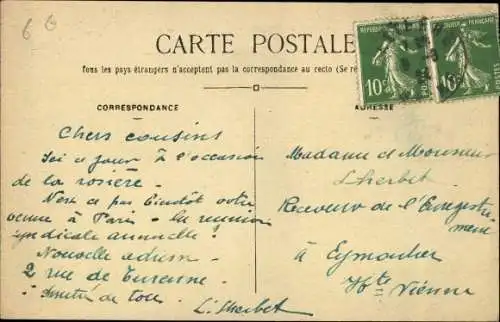 6
CARTE POSTALE
Tous les pays étrangers n'acceptent pas la correspondance au recto (Se re
CORRESPONDANCE
ADRESSE
RÉPUBLIQUE FRANÇAISE
10c
POSTES
10
Chers cousins
Ici ce jour à l'occasion
de la rosière.
N'est ce pas bientôt votre
venue à Paris - la reunion
syndicale annuelle !
Nouvelle adresse
2 rue de Turenne
Amitié de tous
L. Lherbet
Madame et Monsieur
Lherbet
Receveur de l'Enregistre
ment
à Eymoutier
Hte Vienne